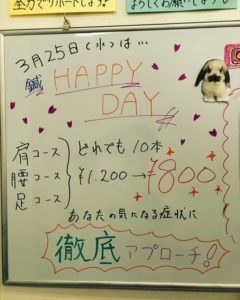 全力でサポートします!
よろしくお願いします
3月25日(水)は…
鍼 HAPPY
DAY
肩コース
腰コース
足コース
どれでも10本
¥1.200→¥800
あなたの気になる症状に
徹底アプローチ!